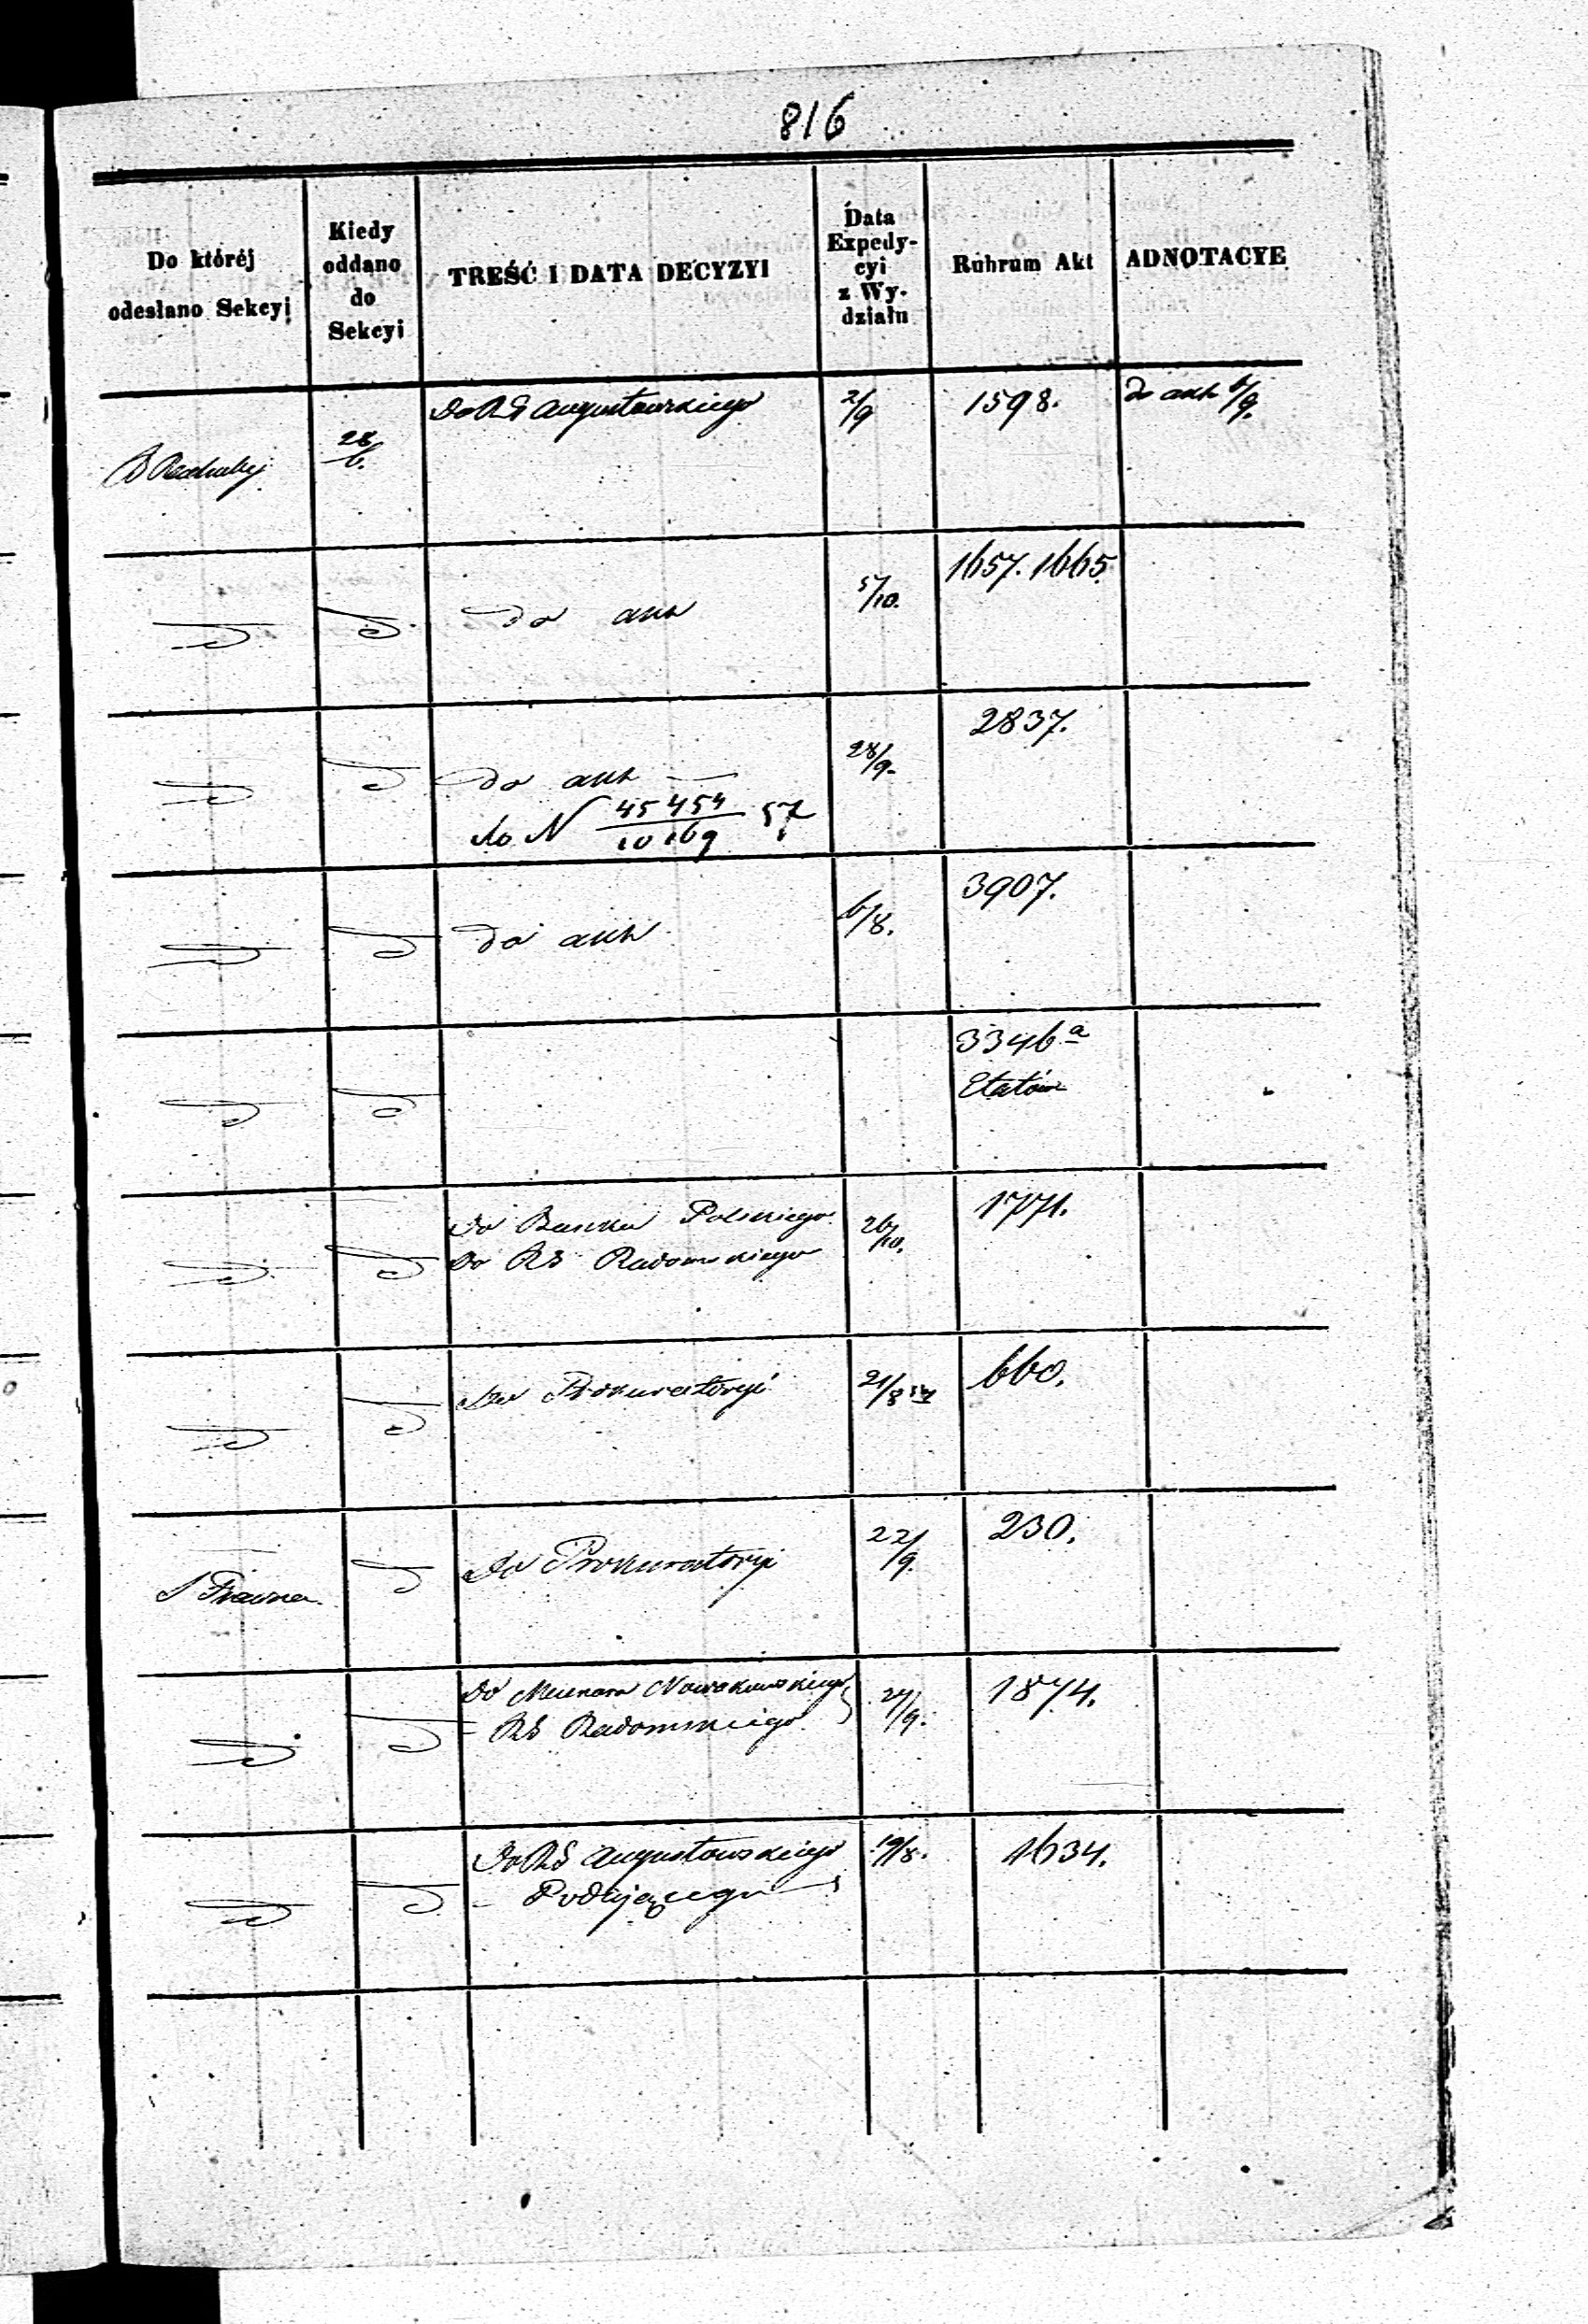 816
Do któréj
odesłano Sekcyi
Kiedy
oddano
do
Sekcyi
TREŚĆ I DATA DECYZYI
Data
Expedy-
cyi
z Wy-
działu
Rubrum Akt
ADNOTACYE
28/6.
Do RG Augustowskiego
2/9
1598.
do akt 6/9.
do akt
5/10.
1657. 1665.
do akt
do N 45454/10169 57
28/9.
2837.
do akt
6/8.
3907.
3346 a
Etatów
Do Banku Polskiego
Do RG Radomskiego
26/10.
1771.
Do Prokuratoryi
21/8
660.
S Prawna
Do Prokuratoryi
22/9.
230.
Do Mecenasa Nowakowskiego
- RG Radomskiego
24/9.
1874.
Do RG Augustowskiego
- Podlejącego
19/8.
1634.